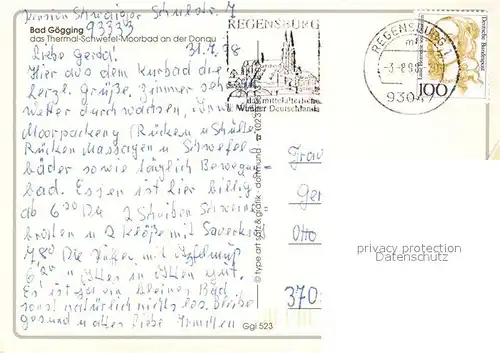 Pension Schulstr. 7
93333
Bad Gögging
das Thermal-Schwefel-Moorbad an der Donau
31.7.98
Liebe Gerda!
Hier aus dem Kurbad die
herzl. Grüße. Zimmer sehr
Wetter durchwachsen.
Moorpackung (Rücken u Schulter
Rücken Massagen u Schwefel
bäder sowie täglich Bewegungs
bad. Essen ist hier billig
ab 6 50 DM 2 Scheiben Schweine
braten u 2 Klöße mit Sauerkraut
7,80 DM mit Apfelmus
6 20 u Alles in Allem gut.
Es ist ja ein kleines Bad
sonst natürlich nichts los. Bleibe
gesund u alles Liebe
REGENSBURG
das mittelalterliche
Wunder Deutschlands
REGENSBURG
93047
Deutsche Bundespost
100
© type art satz & grafik · dortmund
Frau
Ger
Otto
370
Ggl 523
privacy protection
Datenschutz